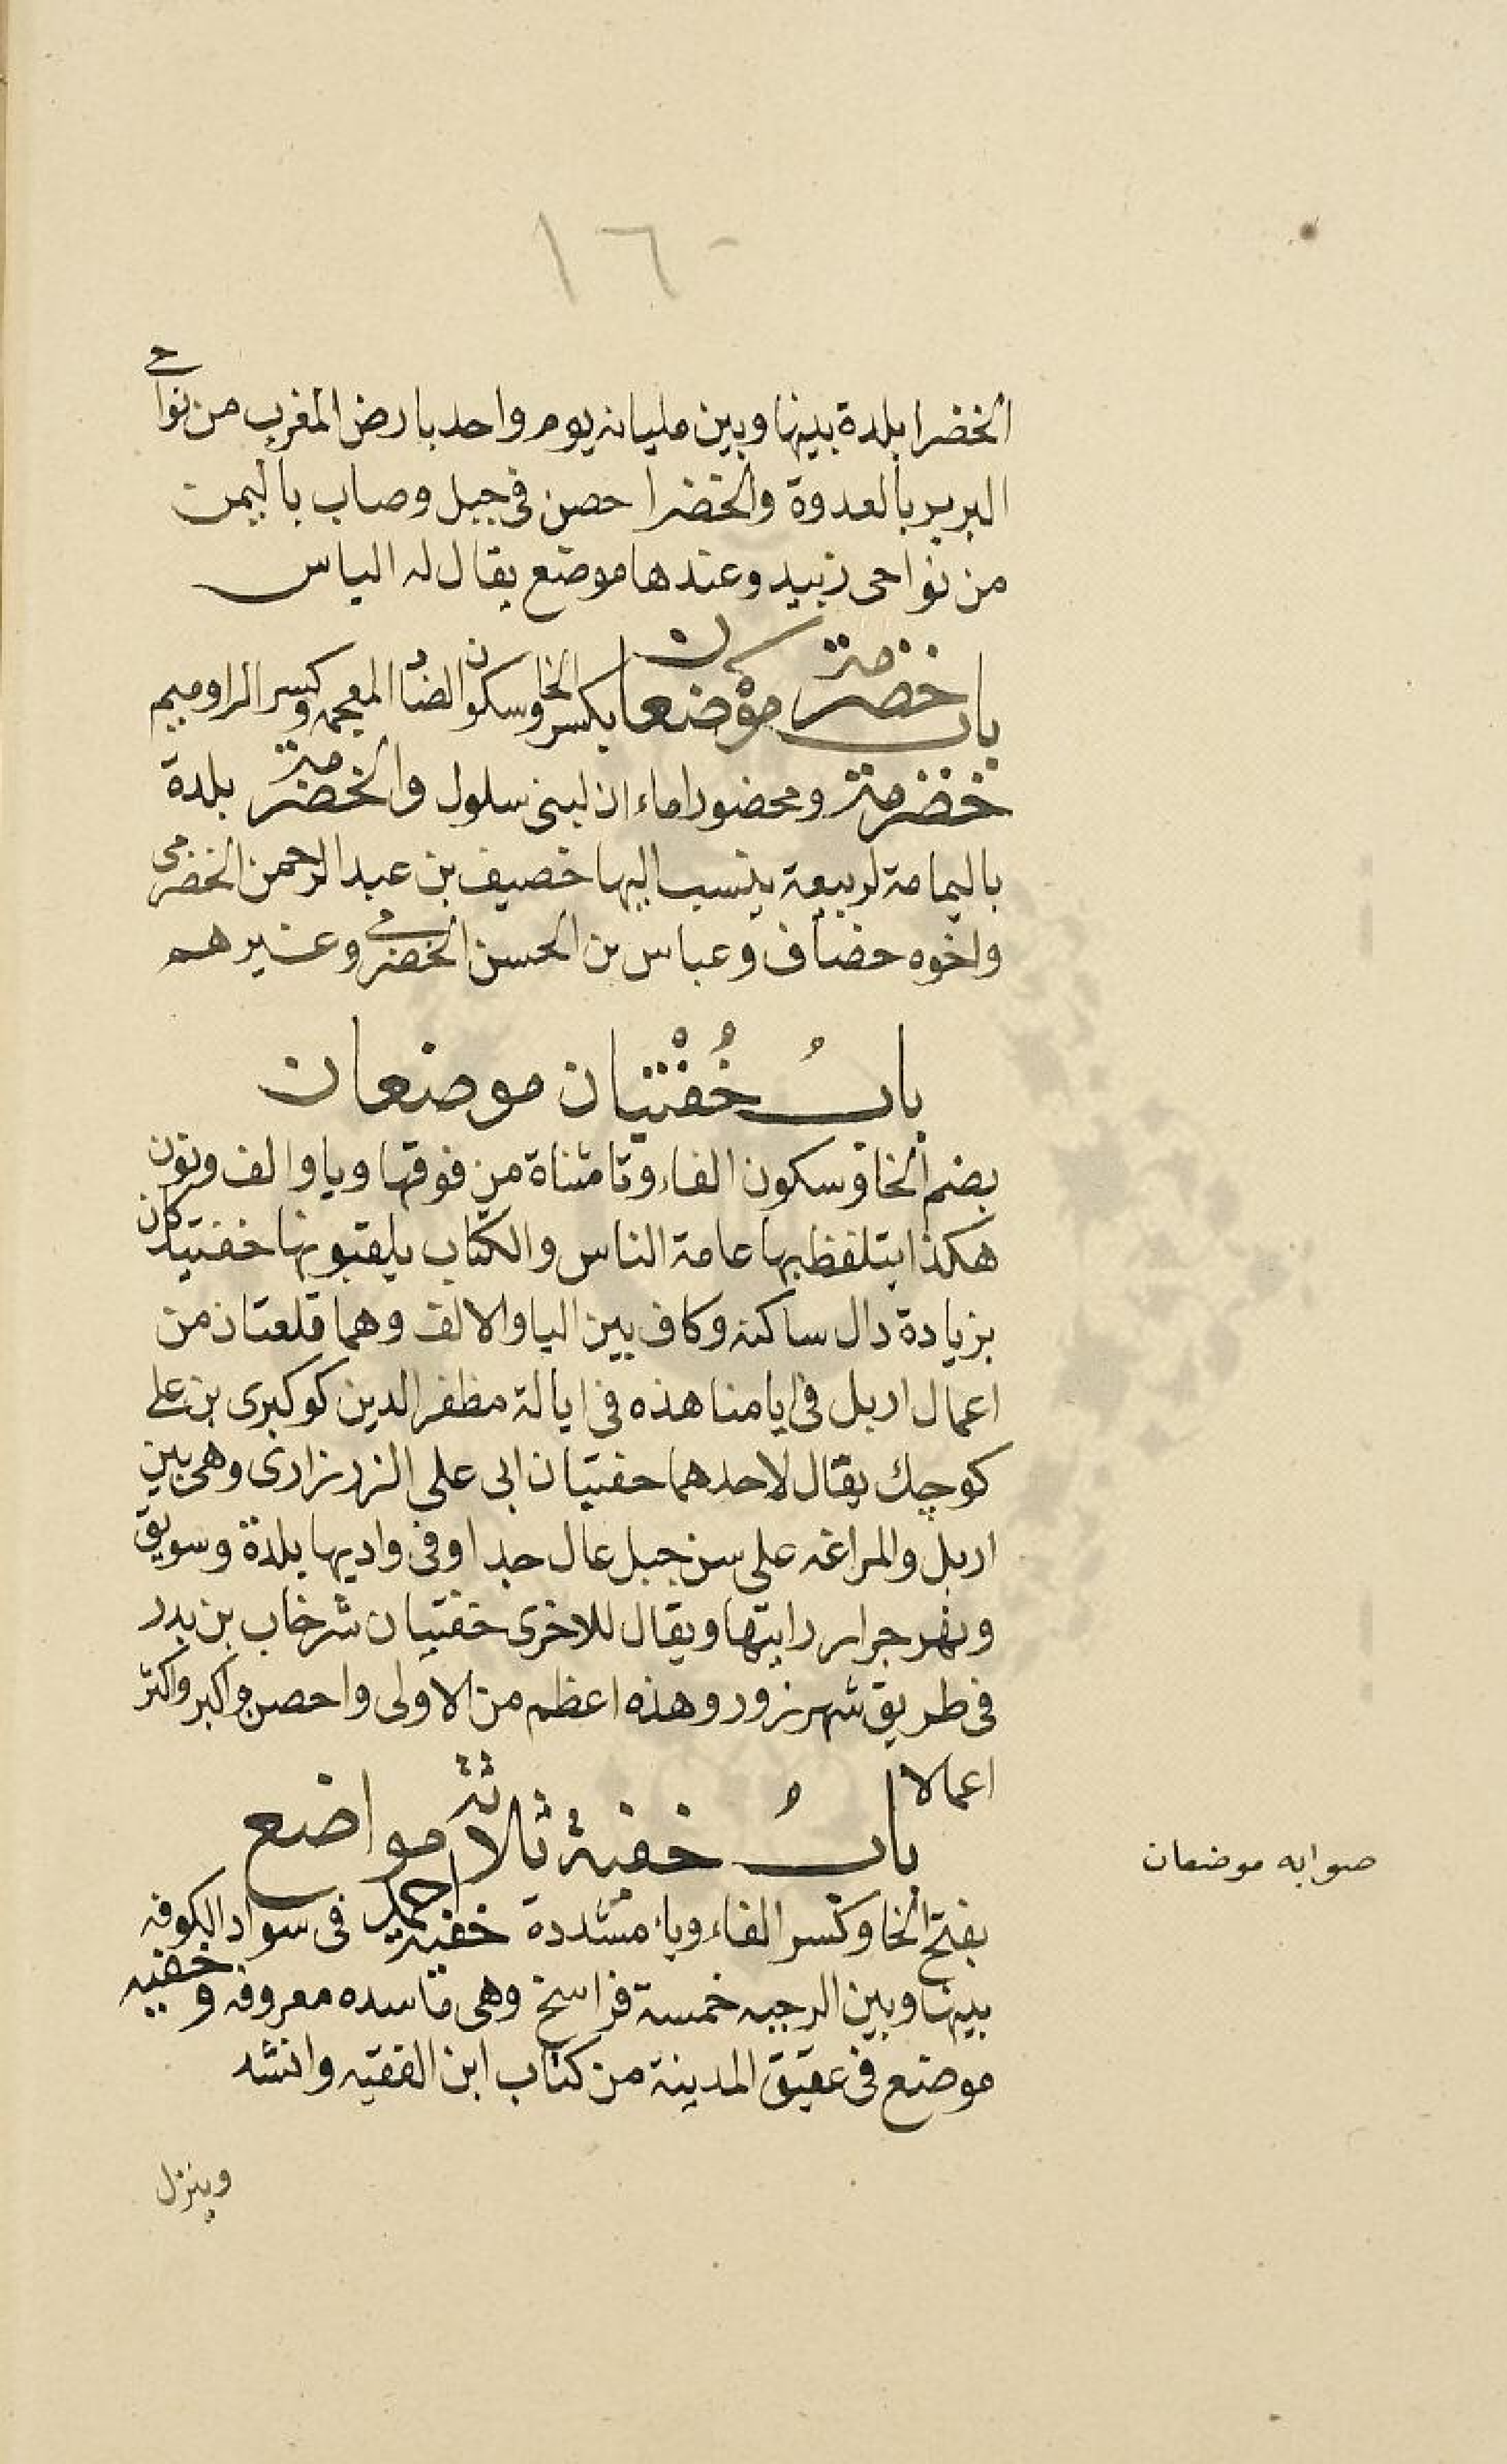 ١٦٠
الخضرا بلدة بينها وبين مليانه يوم واحد بارض المغرب من نواحى
البربر بالعدوة والخضرا حصن فى جبل وصاب باليمن
من نواحى زبيد وعندها موضع يقال له الياس
باب خضرمة موضعان بكسر الخا وسكون الضاد المعجمه وكسر الرا وميم
خضرمة ومحضورا ماءان لبنى سلول والخضرمة بلدة
باليمامة لربيعة ينسب اليها خصيف بن عبد الرحمن الخضرمى
واخوه خصاف وعباس بن الحسن الخضرمى وغيرهم
بابُ خُفْتيان موضعان
بضم الخا وسكون الفاء وتا مثناة من فوقها ويا والف ونون
هكذا يتلفظ بها عامة الناس والكتاب يلقبونها خفتيدكان
بزيادة دال ساكنه وكاف بين اليا والالف وهما قلعتان من
اعمال اربل فى ايامنا هذه فى ايالة مظفر الدين كوكبرى بن على
كوجك يقال لاحدهما خفتيان ابى على الزرزارى وهى بين
اربل والمراغه على سن جبل عال جدا وفى واديها بلدة وسويق
ونهر جرار رايتها ويقال للاخرى خفتيان شرخاب بن بدر
فى طريق شهرزور وهذه اعظم من الاولى واحصن واكبر واكثر
اعمالا
بابُ خفية ثلاثة مواضع
صوابه موضعان
بفتح الخا وكسر الفاء وياء مشددة خفيه اجمه فى سواد الكوفه
بينها وبين الرحبه خمسة فراسخ وهى ماسده معروفه وخفيه
موضع فى عقيق المدينة من كتاب ابن الفقيه وانشد
وينزل